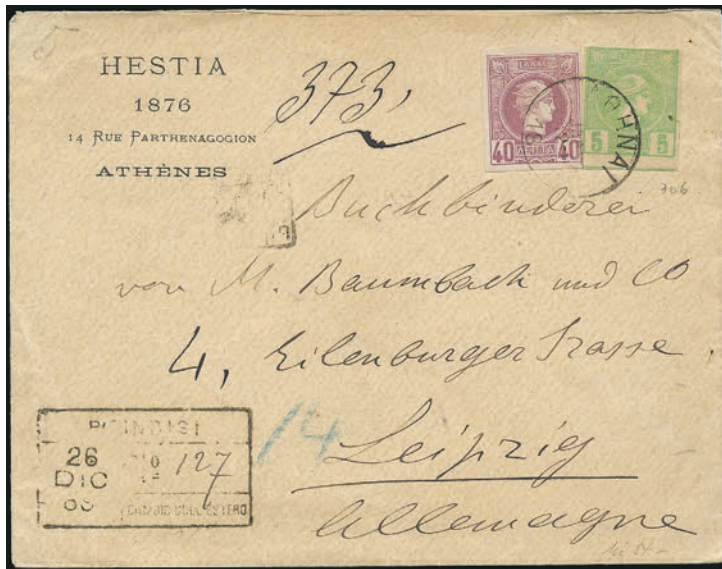 HESTIA
1876
14 RUE PARTHENAGOGION
ATHÈNES
373,
40 ΛΕΠΤΑ 40
5 5
ΑΘΗΝΑΙ
306
Buchbinderei
von M. Baumbach und CO
4, Eilenburger Strasse
14
Leipzig
Allemagne
BRINDISI
26
DIC
127